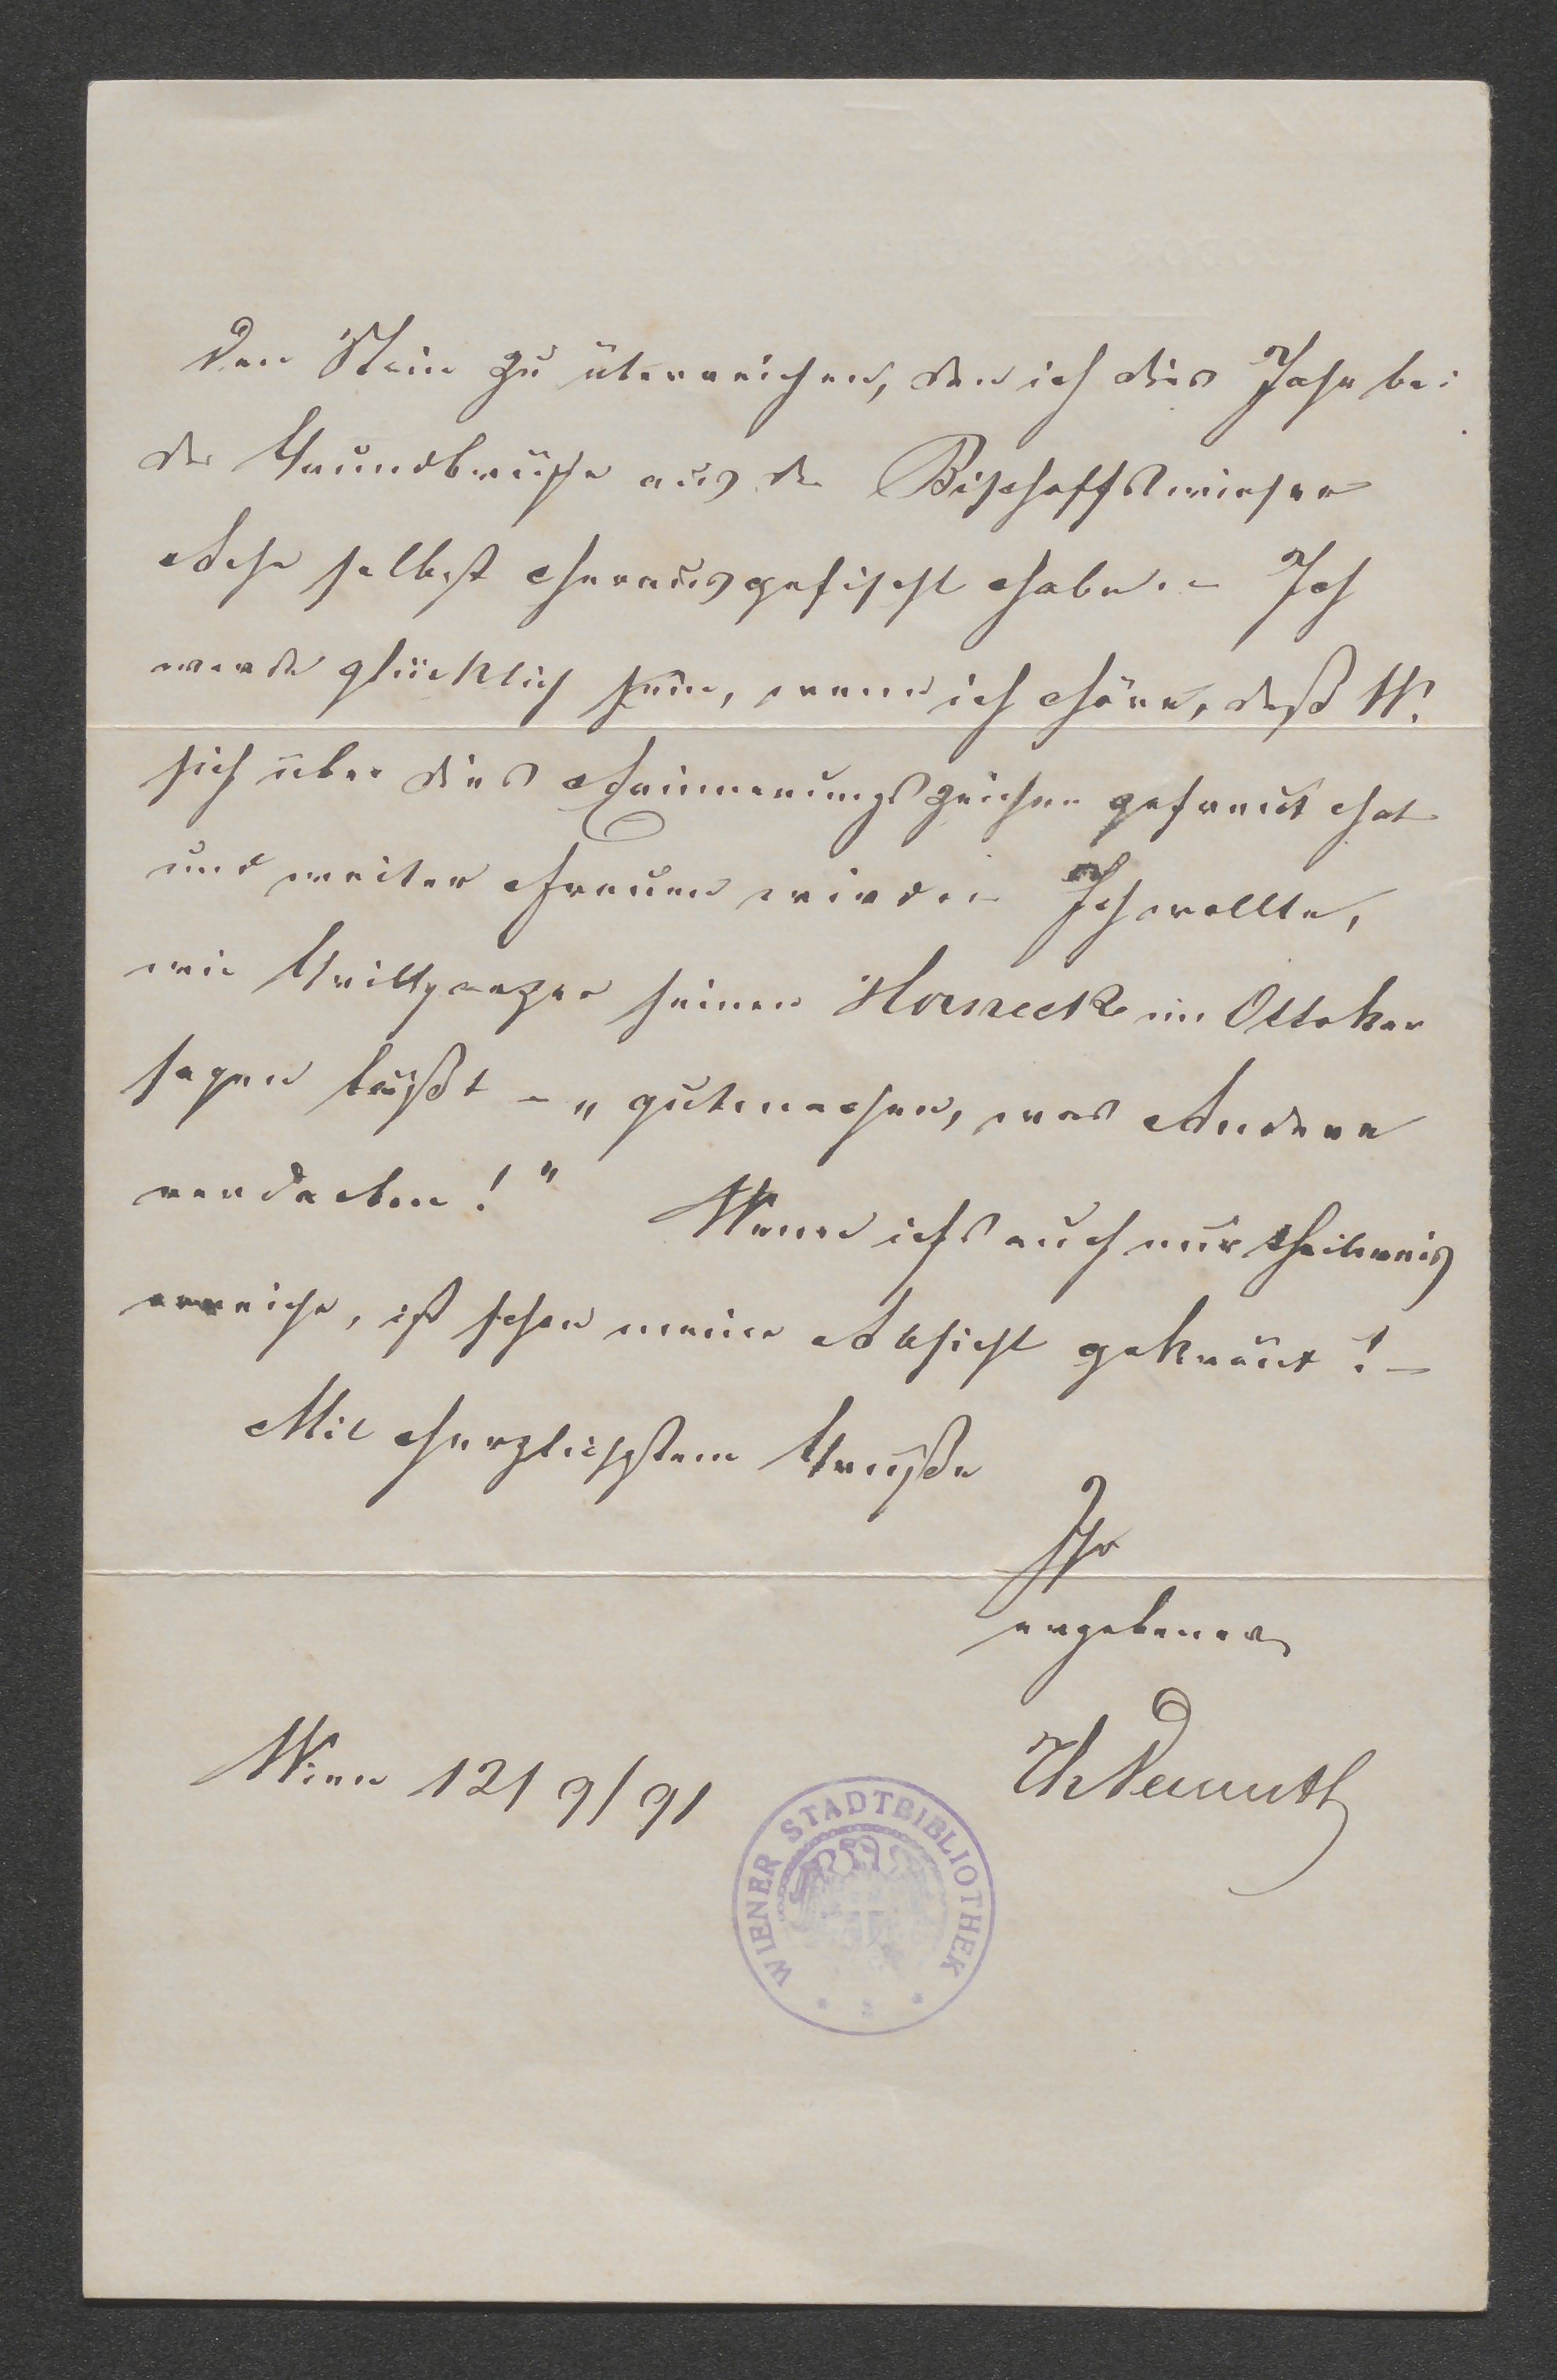 den Stein zu überreichen, den ich dies Jahr bei
der Grundbrücke aus der Bischoffswieser
Ache selbst herausgefischt habe. – Ich
werde glücklich sein, wenn ich höre, daß W.
sich über dies Erinnerungszeichen gefreut hat
und weiter freuen wird. – Ich wollte,
wie Grillparzer seinen Horneck im Ottokar
sagen läßt – „gutmachen, was Andere
verdarben!" Wenn ichs auch nur theilweis
erreiche, ist schon meine Absicht gekrönt! –
Mit herzlichstem Gruße
Ihr
ergebener
Th Demuth
Wien 12/9/91
WIENER STADTBIBLIOTHEK